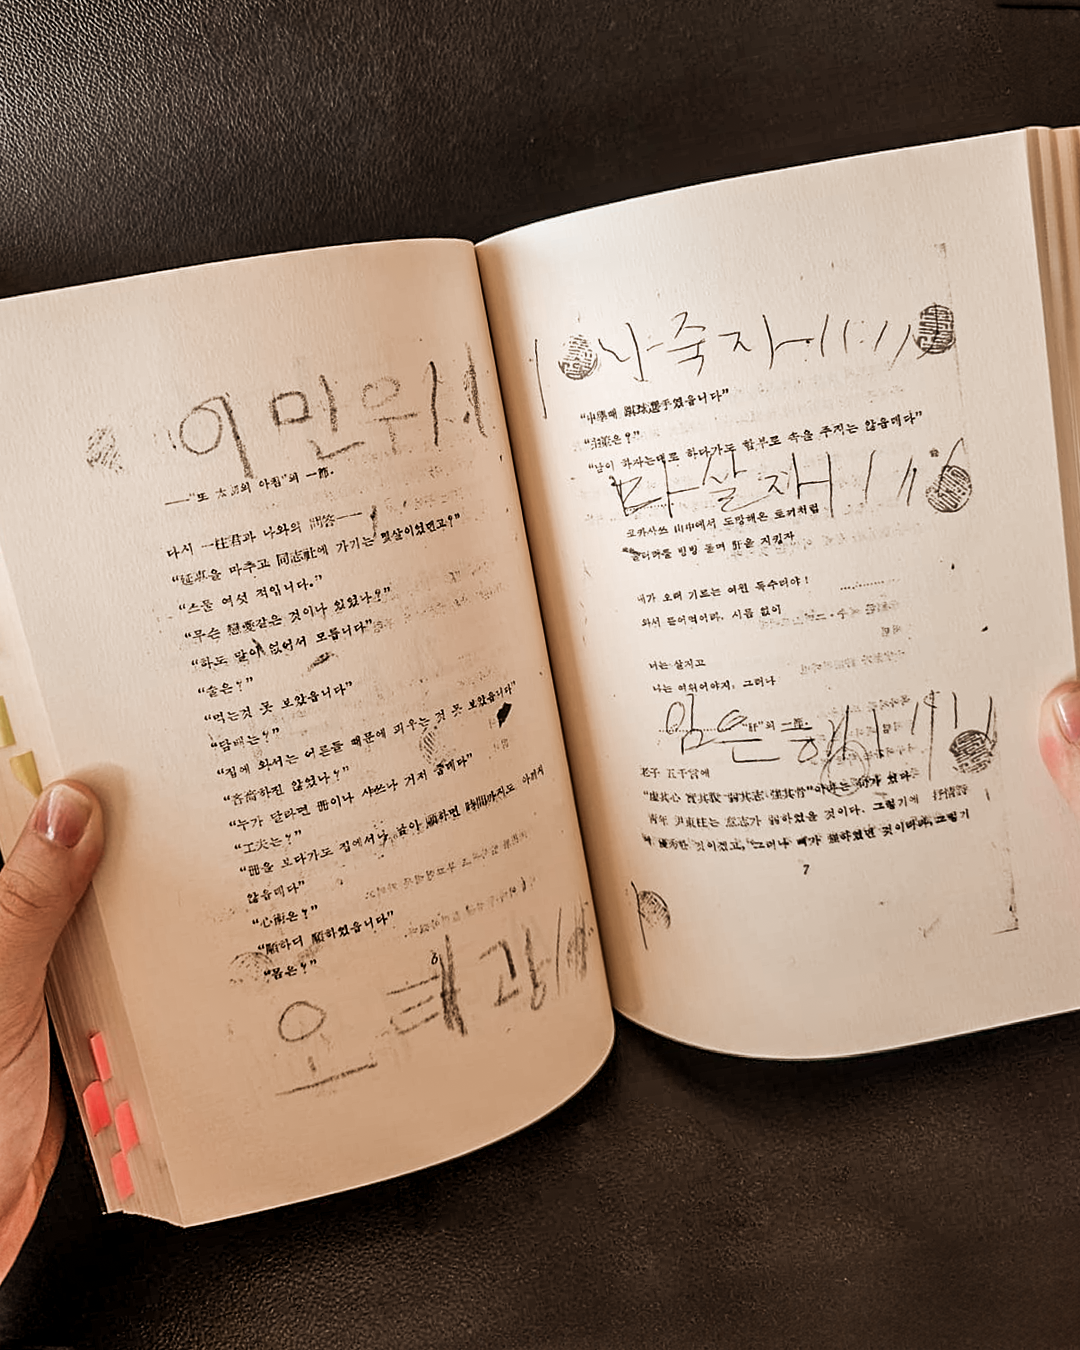 이 만 우 서
——“또 太初의 아침”의 一節.
다시 一柱君과 나와의 問答——
“延專을 마추고 同志社에 가기는 몇살이었던고?”
“스물 여섯 적입니다.”
“무슨 戀愛같은 것이나 있었나?”
“하도 말이 없어서 모릅니다”
“술은?”
“먹는것 못 보았읍니다”
“담배는?”
“집에 와서는 어른들 때문에 피우는 것 못 보았읍니다”
“吝嗇하진 않었나?”
“누가 달라면 冊이나 샤쓰나 거저 줍데다”
“工夫는?”
“冊을 보다가도 집에서나 남이 願하면 時間까지도 아끼지
않읍데다”
“心術은?”
“順하디 順하였읍니다”
“몸은?”
6
오 광
나 죽 자
“中學때 蹴球選手였읍니다”
“主策은?”
“남이 하자는대로 하다가도 함부로 속을 주지는 않읍데다”
다 살 재
코카사쓰 山中에서 도망해온 토끼처럼
둘러리를 빙빙 돌며 肝을 지키자
내가 오래 기르는 여윈 독수리야!
와서 뜯어먹어라, 시름 없이
너는 살지고
나는 여위어야지, 그러나
암 은
“肝”의 一節.
老子 五千言에
“虛其心 實其腹 弱其志 强其骨”이라는 句가 있다.
青年 尹東柱는 意志가 弱하였을 것이다. 그렇기에 抒情詩
에 優秀한 것이겠고, 그러나 뼈가 强하였던 것이리라, 그렇기
7